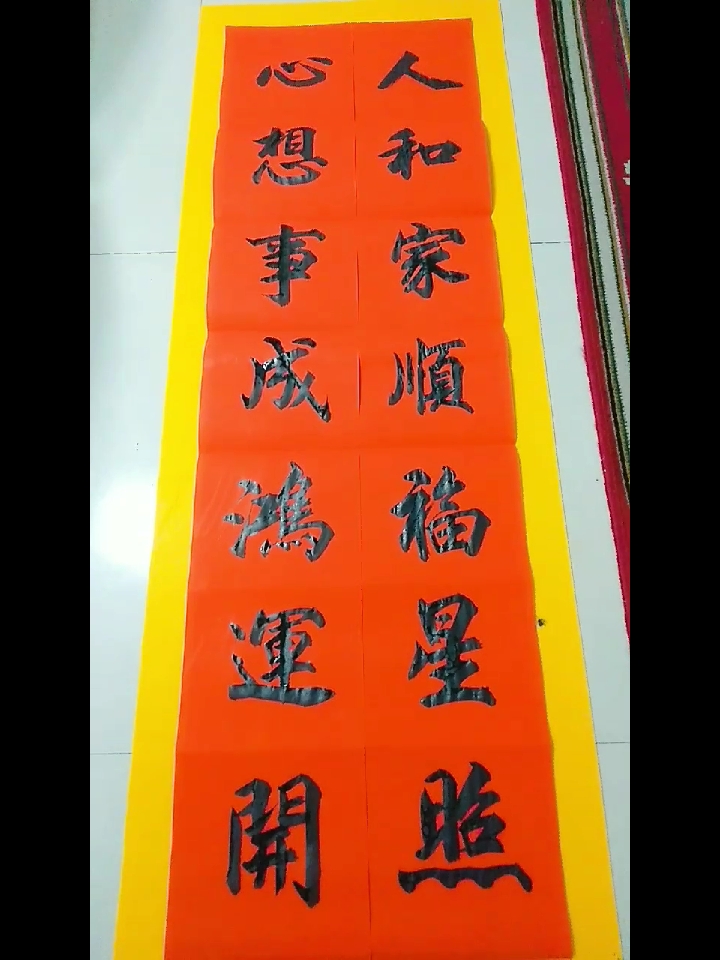 人和家順福星照
心想事成鴻運開